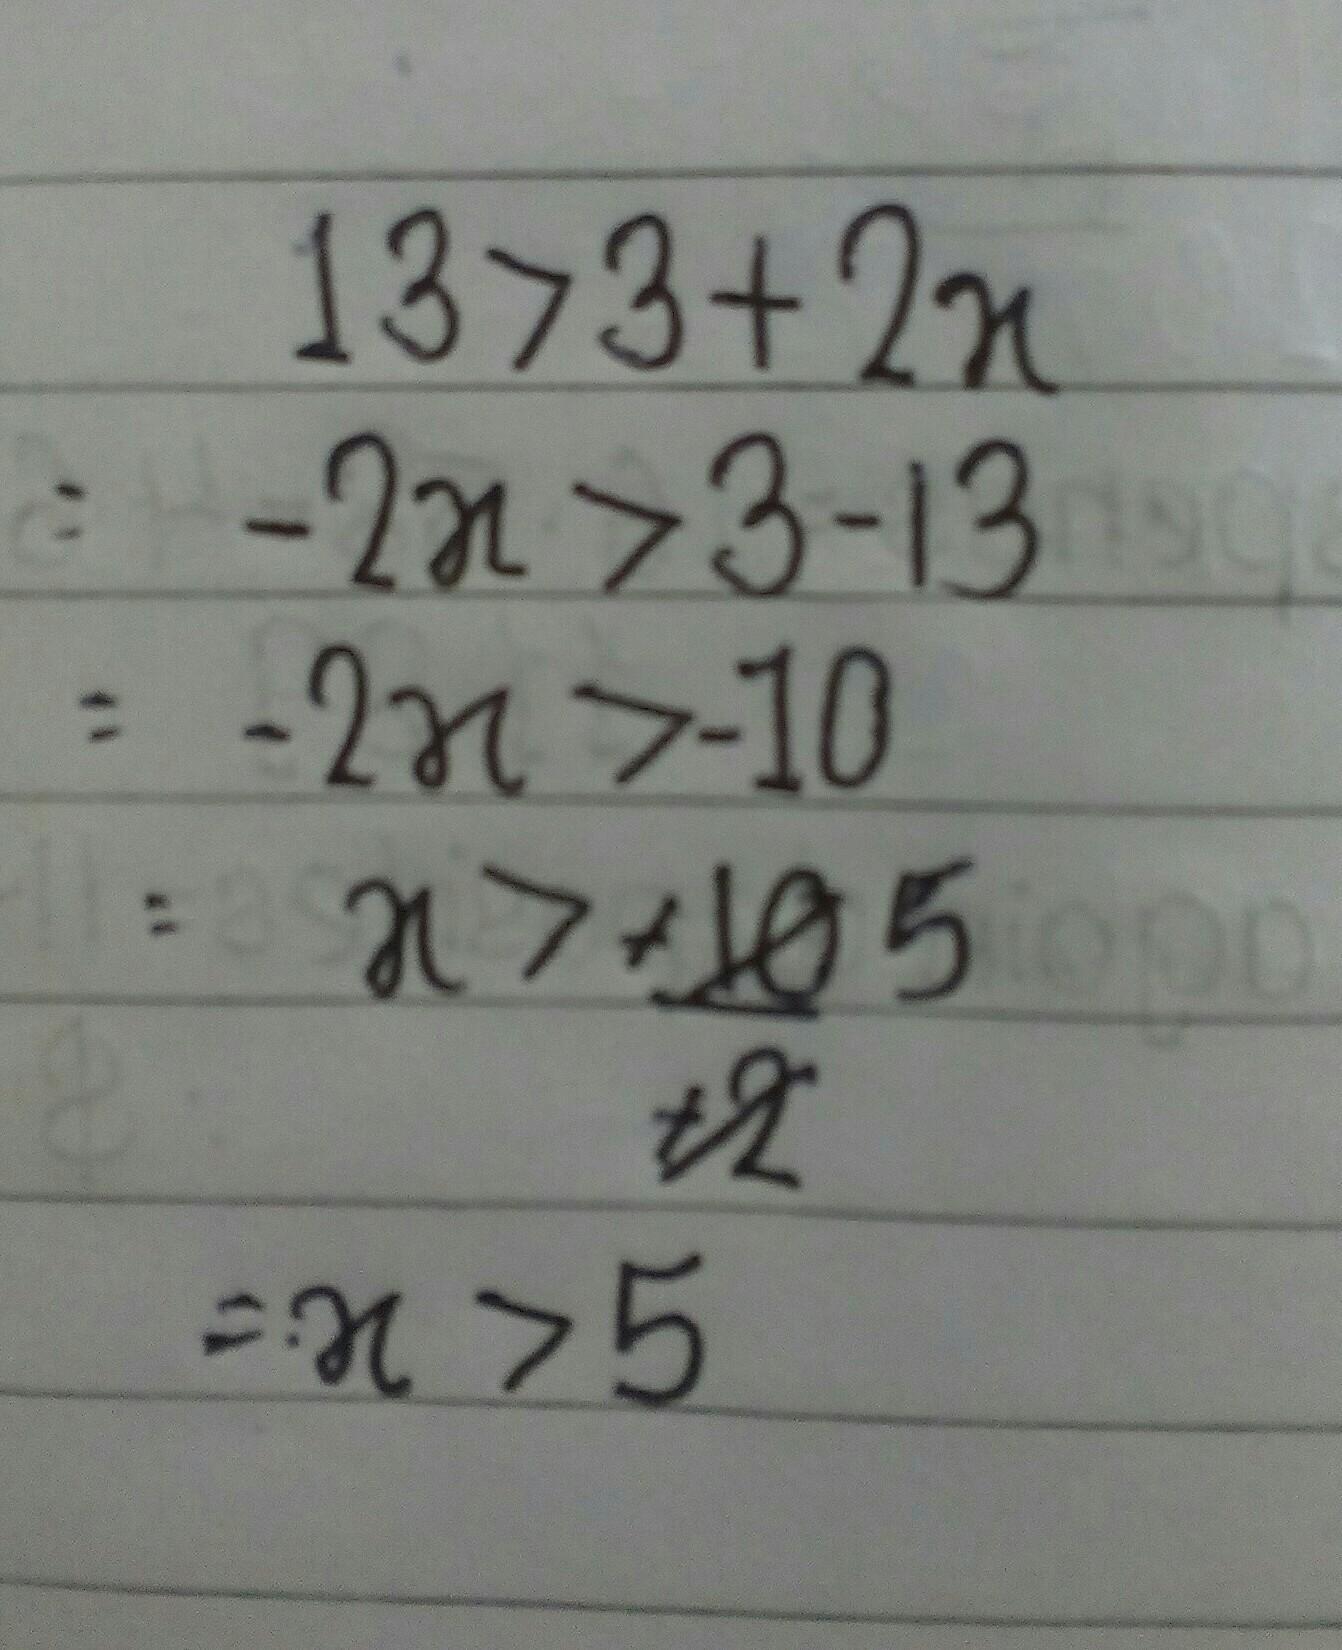 13 > 3 + 2x
= -2x > 3 - 13
= -2x > -10
= x > +10 5
+2
= x > 5